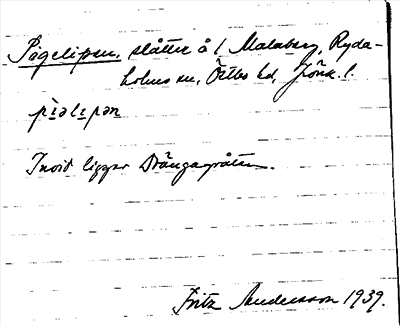 Pigelipen, slåtter å l Malaberg, Ryda-
holms sn, Östbo hd, Jönk. l.
pìəlıpən
Invid ligger Drängagråten.
Fritz Andersson 1939.